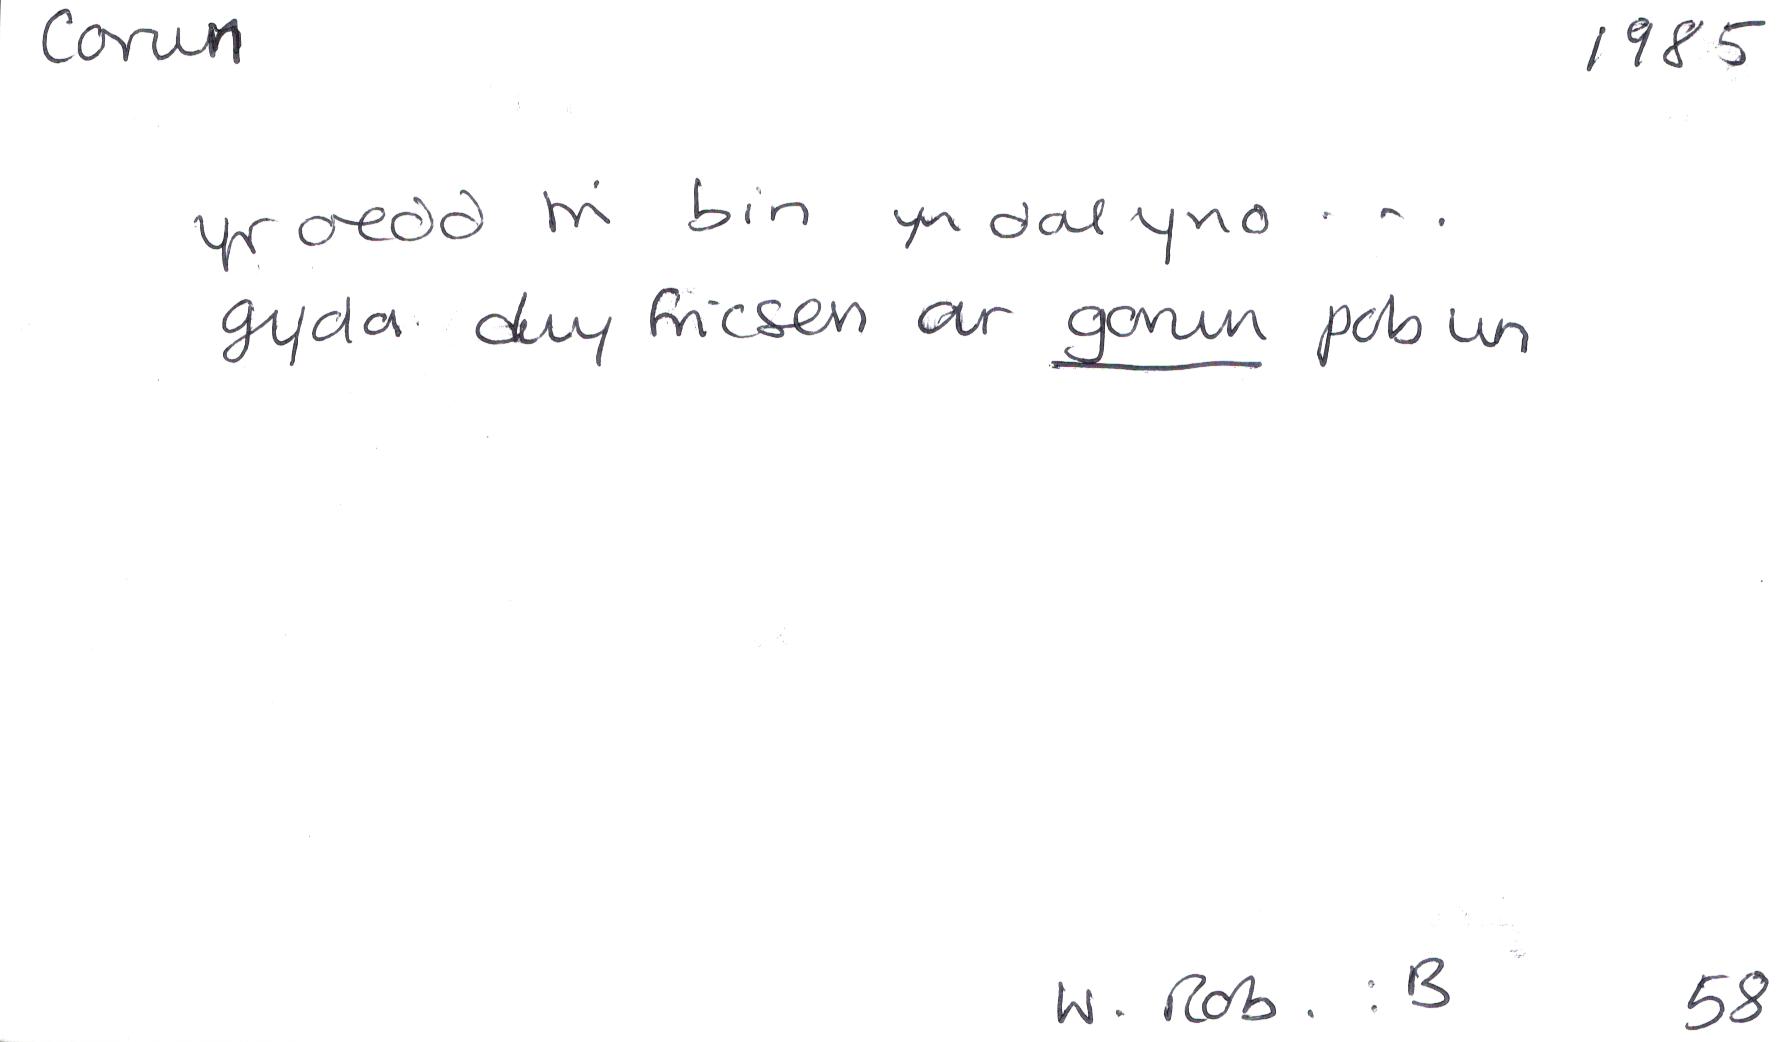 Corun 1985
yr oedd tri bin yn dal yno . . .
gyda dwy fricsen ar gorun pob un
W. Rob. : B 58